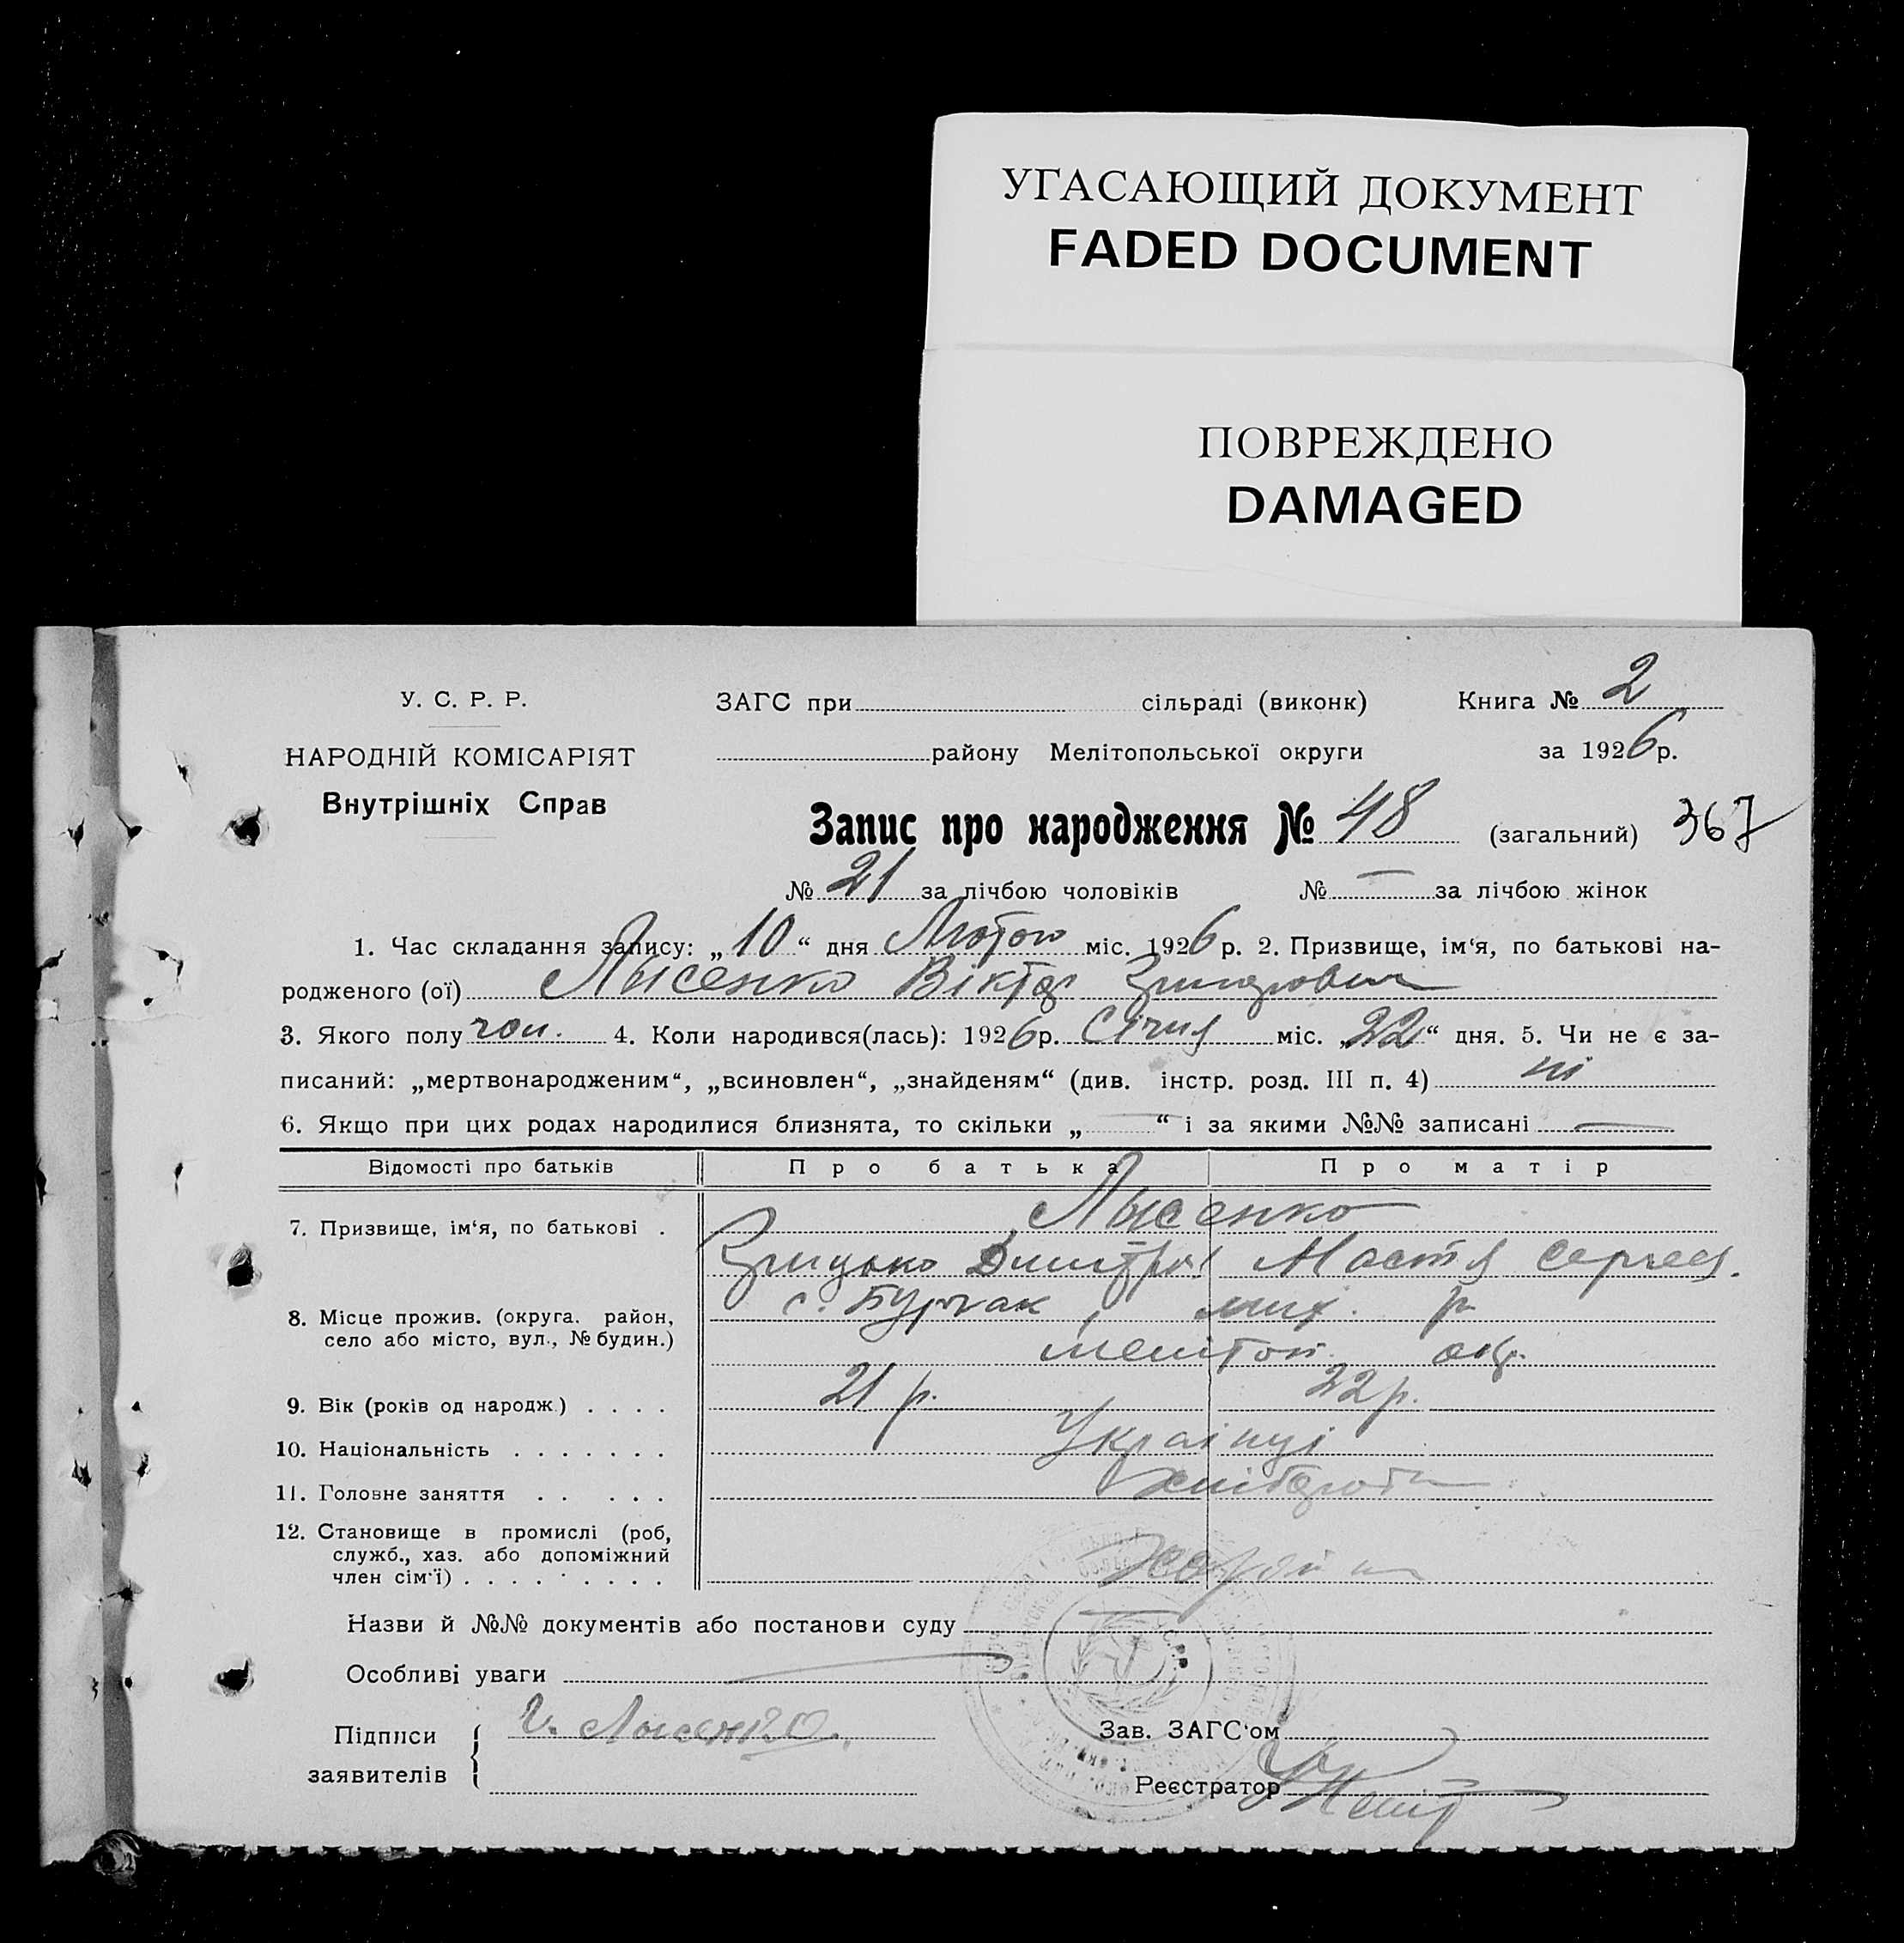 УГАСАЮЩИЙ ДОКУМЕНТ
FADED DOCUMENT
ПОВРЕЖДЕНО
DAMAGED
У. С. Р. Р.
НАРОДНІЙ КОМІСАРІЯТ
Внутрішніх Справ
ЗАГС при сільраді (виконк) Книга № 2
району Мелітопольської округи за 1926 р.
Запис про народження № 48 (загальний) 367
№ 21 за лічбою чоловіків № — за лічбою жінок
1. Час складання запису: „10“ дня Лютого міс. 1926 р. 2. Призвище, ім‘я, по батькові на-
родженого (ої) Лысенко Віктор
3. Якого полу чол. 4. Коли народився(лась): 1926 р. Січня міс. „22“ дня. 5. Чи не є за-
писаний: „мертвонародженим“, „всиновлен“, „знайденям“ (див. інстр. розд. III п. 4) ні
6. Якщо при цих родах народилися близнята, то скільки „ “ і за якими №№ записані —
Відомості про батьків Про батька Про матір
7. Призвище, ім‘я, по батькові . Лысенко
Грицько Дмитров Настя Сергеев.
8. Місце прожив. (округа. район, с. Бурчак, мих. р
село або місто, вул., № будин.) мелітоп. окр.
9. Вік (років од народж.) . . . . 21 р. 22 р.
10. Національність . . . . . . . Українці
11. Головне заняття . . . . . Хлібороби
12. Становище в промислі (роб,
служб., хаз. або допоміжний
член сім‘ї) . . . . . . . . .
Назви й №№ документів або постанови суду
Особливі уваги
Підписи Г. Лысенко.
заявителів
Зав. ЗАГС‘ом
Реєстратор